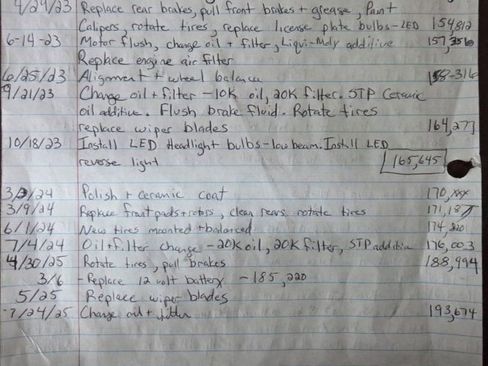 4/24/23 Replace rear brakes, pull front brakes + grease, Paint
Calipers, rotate tires, replace license plate bulbs-LED 154,812
6-14-23 Motor flush, change oil + filter, Liqui-Moly additive 157,356
Replace engine air filter
6/25/23 Alignment + wheel balance 158-316
9/21/23 Change oil + filter - 10K oil, 20K filter. STP Ceramic
oil additive. Flush brake fluid. Rotate tires
replace wiper blades 164,277
10/18/23 Install LED Headlight bulbs - low beam. Install LED
reverse light 165,645
/24 Polish + ceramic coat 170,xxx
3/9/24 Replace front pads + rotors, clean rears, rotate tires 171,
6/11/24 New tires mounted + balanced 174,220
7/4/24 Oil + filter change - 20K oil, 20K filter, STP additive 176,003
4/30/25 Rotate tires, pull brakes 188,994
3/6 - Replace 12 volt battery - 185,220
5/25 Replace wiper blades
7/24/25 Change oil + filter 193,674